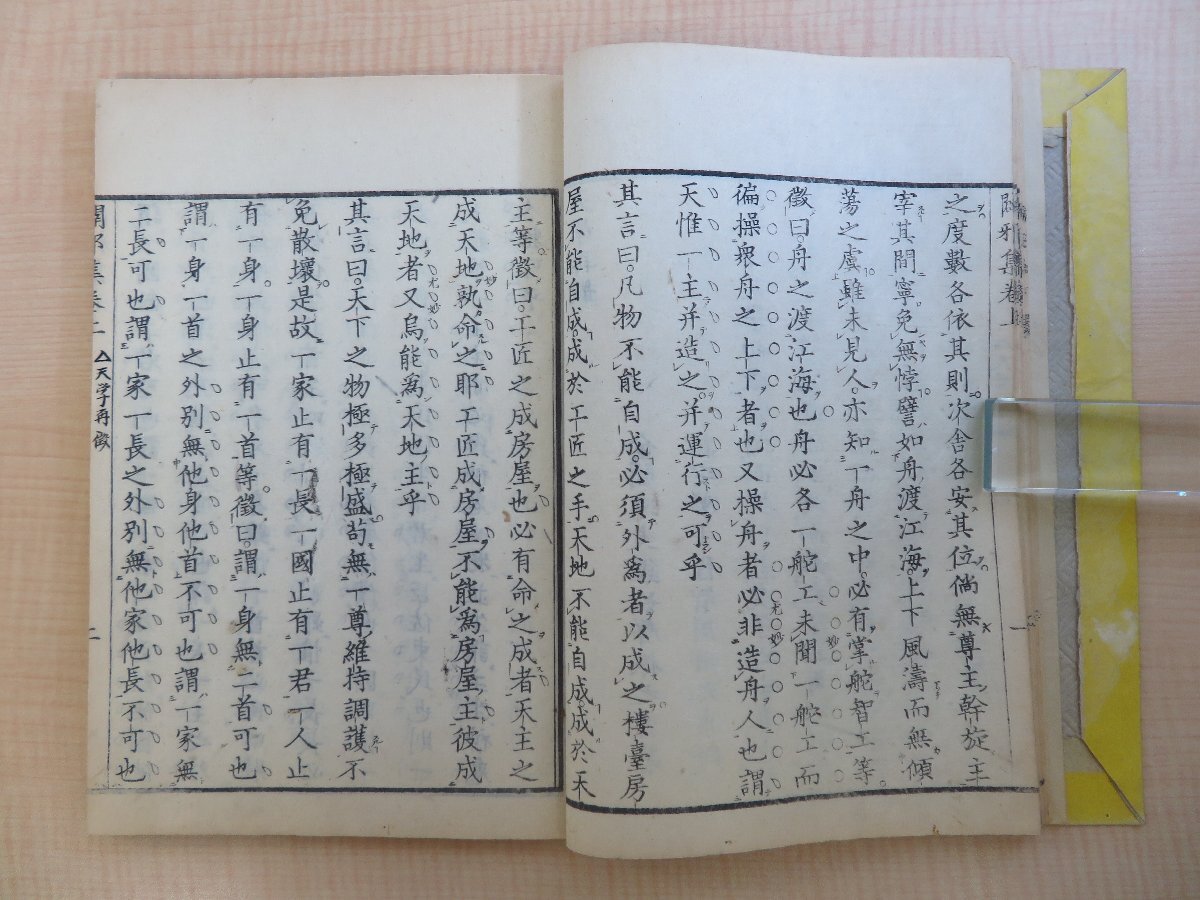 闢邪集卷上
之度數各依其則次舍各安其位倘無尊主斡旋主
宰其間寧免無悖譬如舟渡江海上下風濤而無傾
蕩之虞雖未見人亦知一舟之中必有掌舵智工等
徵曰舟之渡江海也舟必各一舵工未聞一舵工而
徧操衆舟之上下者也又操舟者必非造舟人也謂
天惟一主并造之并運行之可乎
其言曰凡物不能自成必須外爲者以成之樓臺房
屋不能自成成於工匠之手天地不能自成成於天
主等徵曰工匠之成房屋也必有命之成者天主之
成天地孰命之耶工匠成房屋不能爲房屋主彼成
天地者又烏能爲天地主乎
其言曰天下之物極多極盛苟無一尊維持調護不
免散壞是故一家止有一長一國止有一君一人止
有一身一身止有一首等徵曰謂一身無二首可也
謂一身一首之外別無他身他首不可也謂一家無
二長可也謂一家一長之外別無他家他長不可也
闢邪集卷上 △天学再徴 二